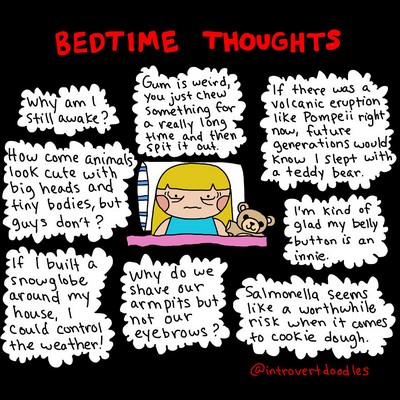 BEDTIME THOUGHTS
Why am I
still awake?
Gum is weird,
you just chew
something for
a really long
time and then
spit it out.
If there was a
volcanic eruption
like Pompeii right
now, future
generations would
know I slept with
a teddy bear.
How come animals
look cute with
big heads and
tiny bodies, but
guys don't?
I'm kind of
glad my belly
button is an
innie.
If I built a
snowglobe
around my
house, I
could control
the weather!
Why do we
shave our
armpits but
not our
eyebrows?
Salmonella seems
like a worthwhile
risk when it comes
to cookie dough.
@introvertdoodles